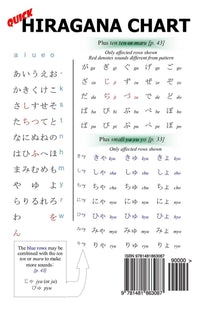 QUICK
HIRAGANA CHART
Plus ten ten an maru [p. 43]
Only affected rows shown
Red denotes sounds different from pattern
a i u e o
あ い う え お -
か き く け こ k
さ し す せ そ s
た ち つ て と t
な に ぬ ね の n
は ひ ふ へ ほ h
ま み む め も m
や ゆ よ y
ら り る れ ろ r
わ を w
ん
が ga ぎ gi ぐ gu げ ge ご go
ざ za じ ji ず zu ぜ ze ぞ zo
だ da ぢ ji づ zu で de ど do
ば ba び bi ぶ bu べ be ぼ bo
ぱ pa ぴ pi ぷ pu ぺ pe ぽ po
Plus small ya yu yo [p. 33]
Only affected rows shown
きゃ kya きゅ kyu きょ kyo
しゃ sha しゅ shu しょ sho
ちゃ cha ちゅ chu ちょ cho
にゃ nya にゅ nyu にょ nyo
ひゃ hya ひゅ hyu ひょ hyo
みゃ mya みゅ myu みょ myo
りゃ rya りゅ ryu りょ ryo
The blue rows may be
combined with the ten
ten or maru to make
more sounds-
[p. 43]
じゃ jya (or ja)
ぴゅ pyu
ISBN 9781481863087
90000
9 781481 863087